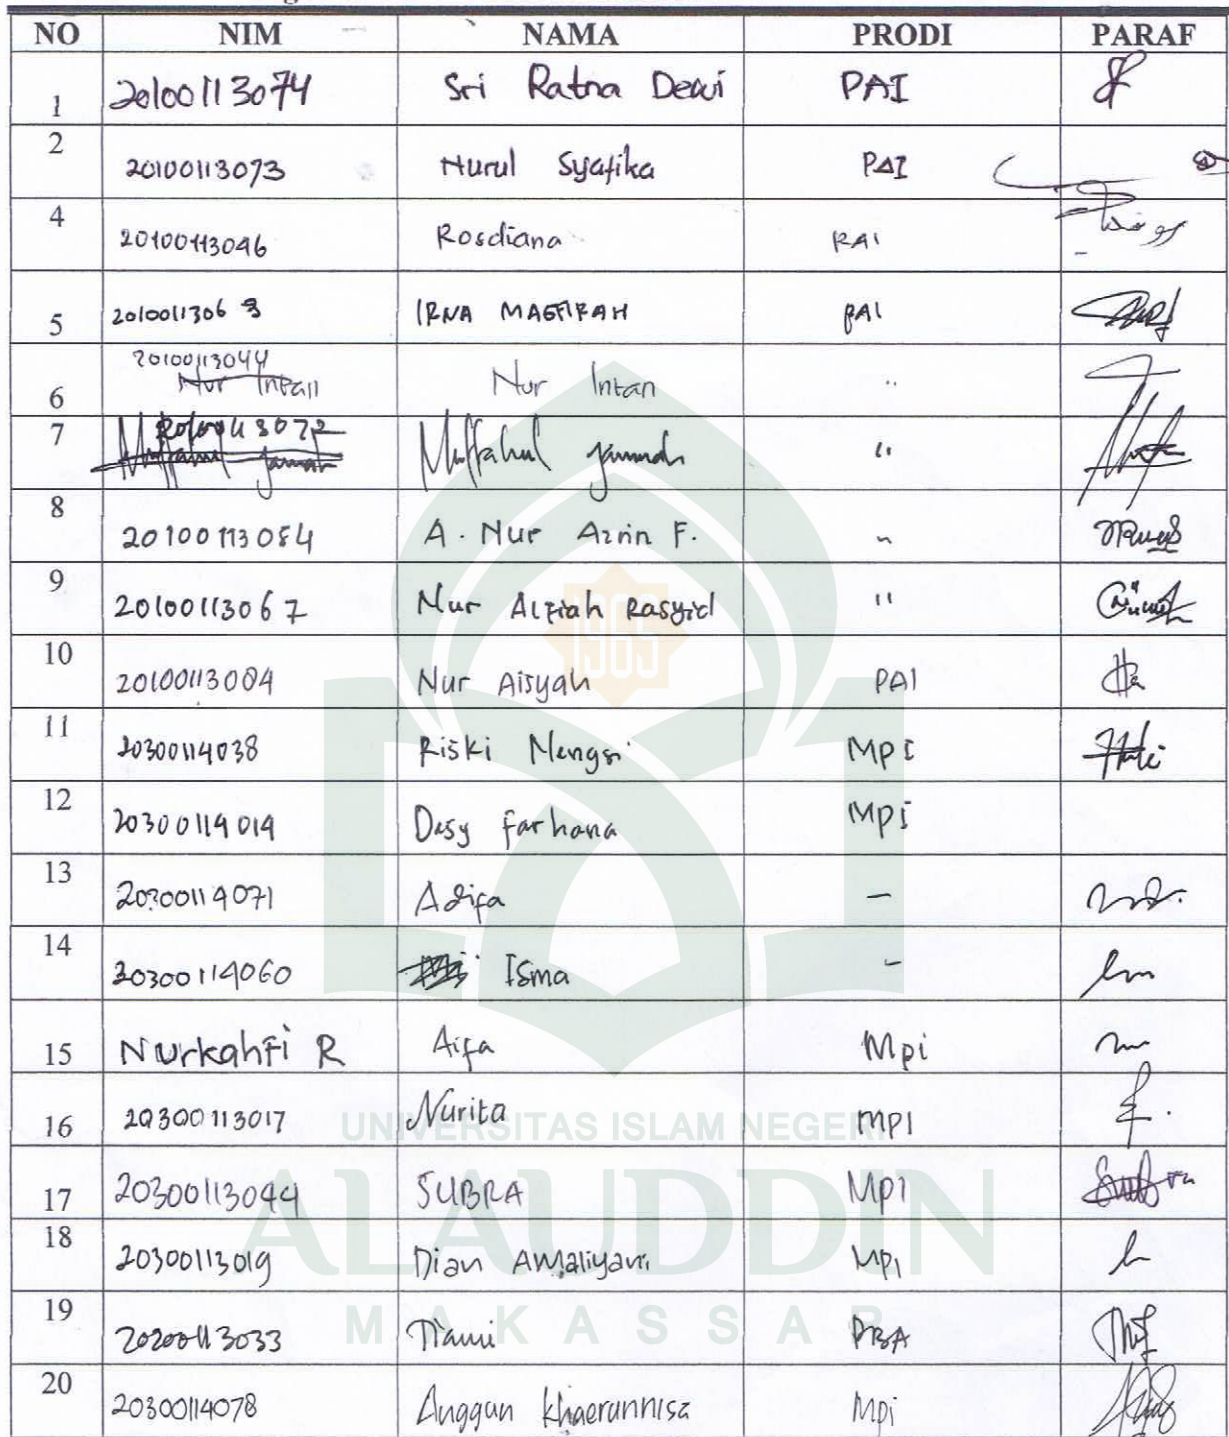 NO NIM NAMA PRODI PARAF
1 20100113074 Sri Ratna Dewi PAI
2 20100113073 Nurul Syafika PAI
4 20100113046 Rosdiana PAI
5 2010011306 3 IRNA MAGFIRAH PAI
6 20100113044 Nur Intan Nur Intan "
7 Miftahul Jannah "
8 20100113054 A. Nur Azrin F. "
9 20100113067 Nur Alfiah Rasyid "
10 20100113084 Nur Aisyah PAI
11 20300114038 Riski Mengsi MPI
12 20300114014 Desy farhana MPI
13 20300114071 Adifa -
14 20300114060 Isma -
15 Nurkahfi R Aifa Mpi
16 20300113017 Nurita MPI
17 20300113044 SUBRA MPI
18 20300113019 Dian Amaliyani MPI
19 20200113033 PBA
20 20300114078 Anggun Khaerunnisa Mpi
1965
UNIVERSITAS ISLAM NEGERI
ALAUDDIN
MAKASSAR